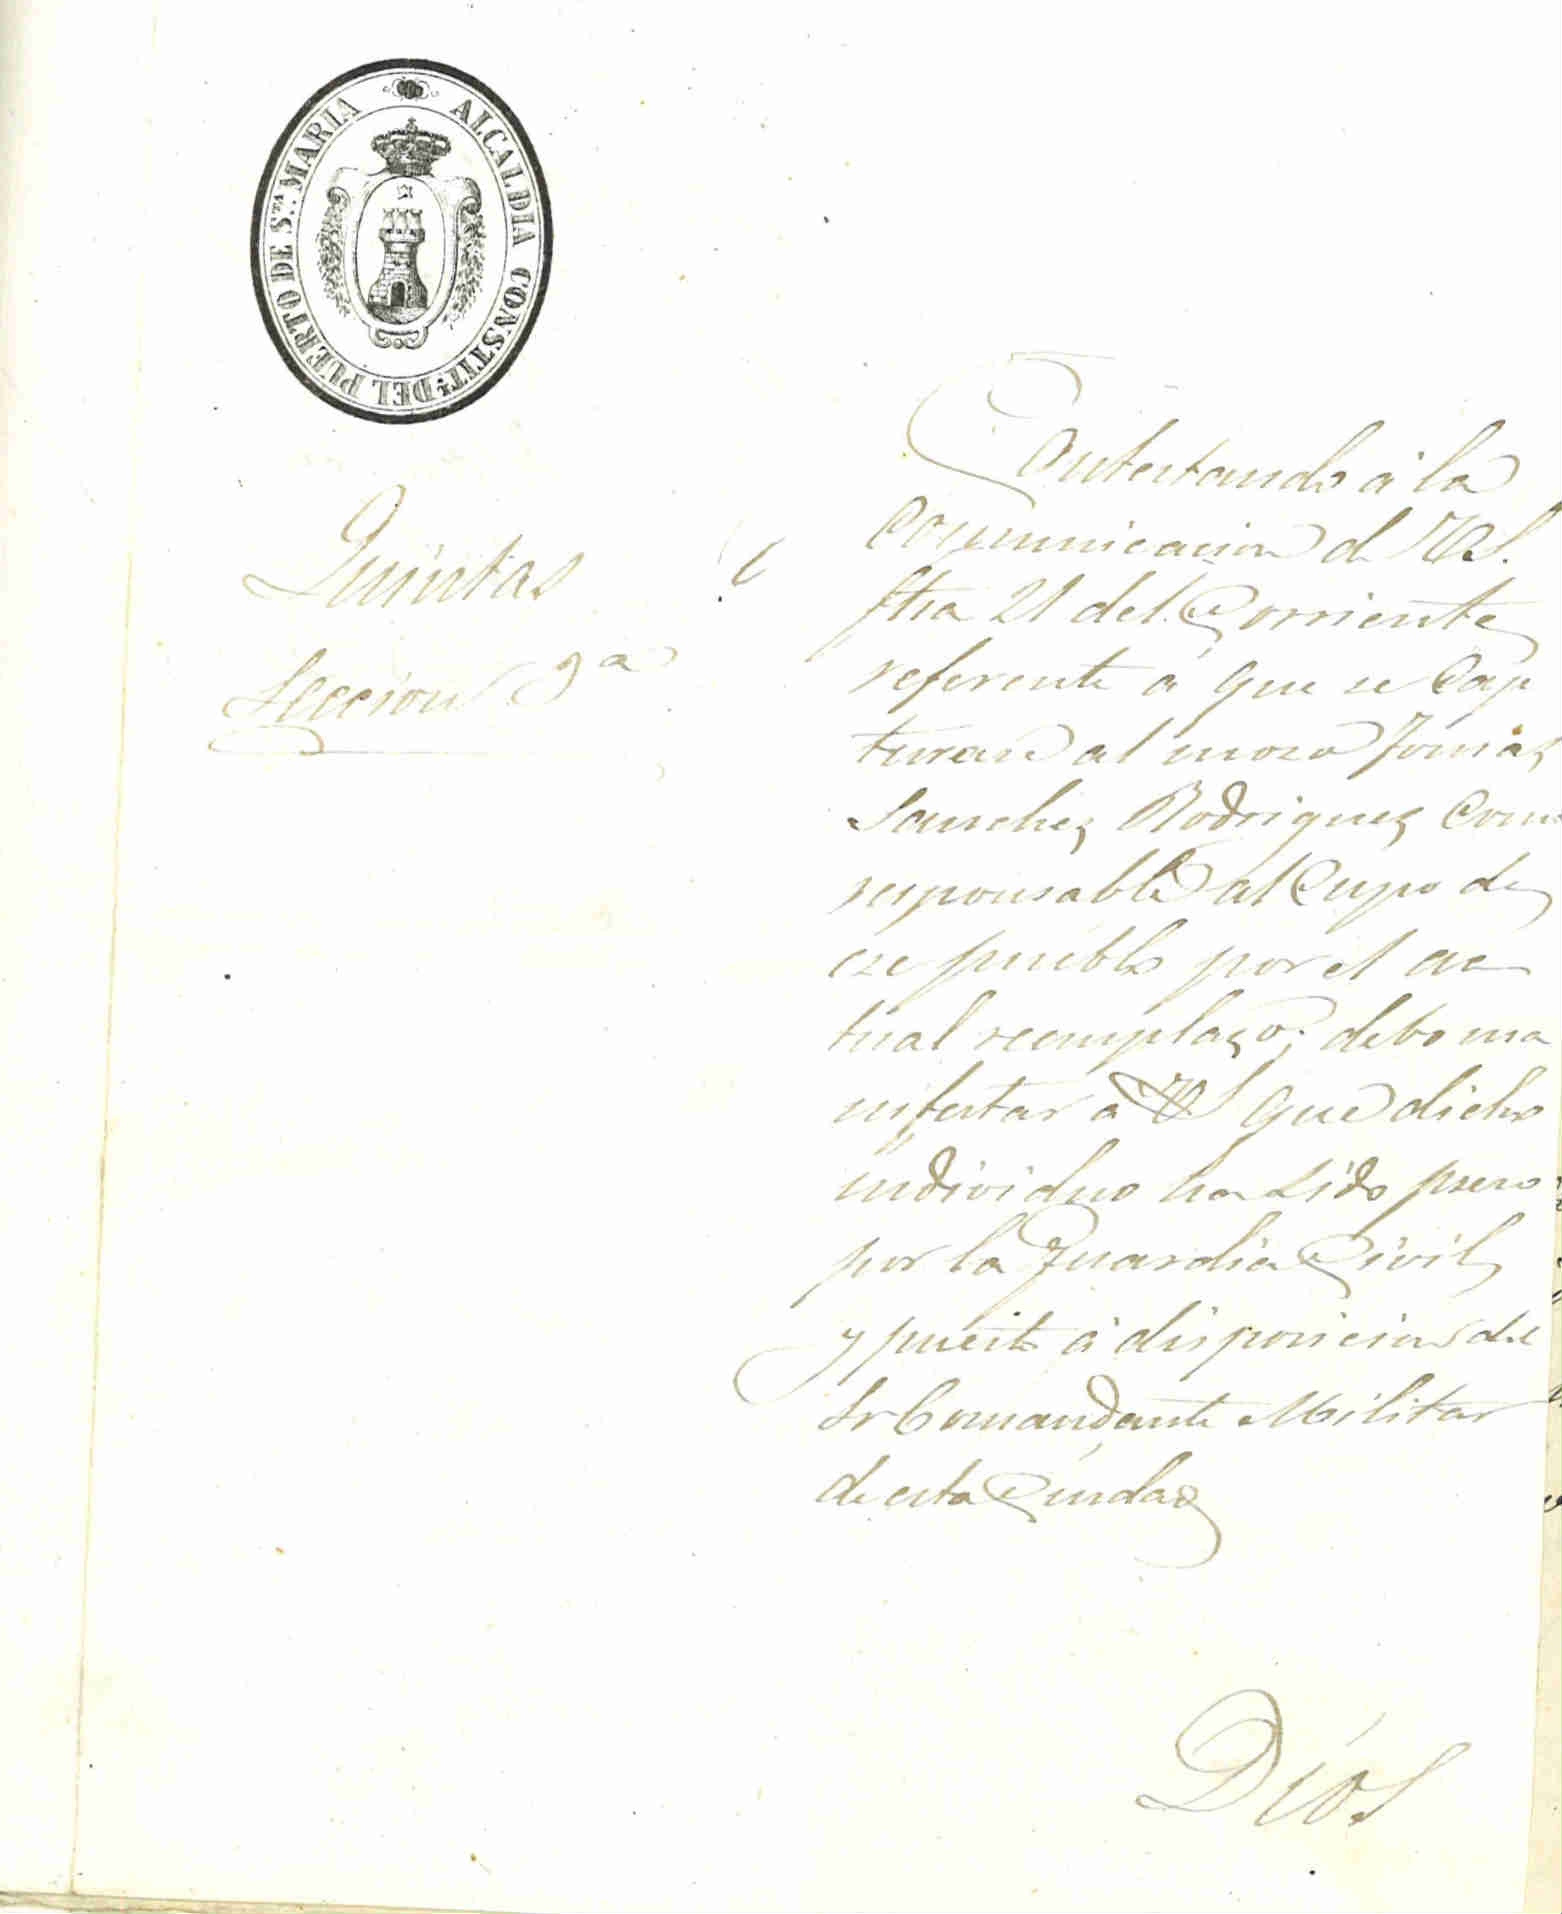 ALCALDIA CONSTIT.L DEL PUERTO DE S.TA MARIA
Quintas
Seccion 9a
Contestando á la
comunicacion de V.S.
fha 21 del Corriente
referente á que se Cap
turara al mozo Tomas
Sanchez Rodriguez Como
responsable al Cupo de
ese pueblo por el ac
tual reemplazo; debo ma
nifestar a VS que dicho
individuo ha sido preso
por la Guardia Civil
y puesto á disposicion del
Sr Comandante Militar
de esta Ciudad
Dios